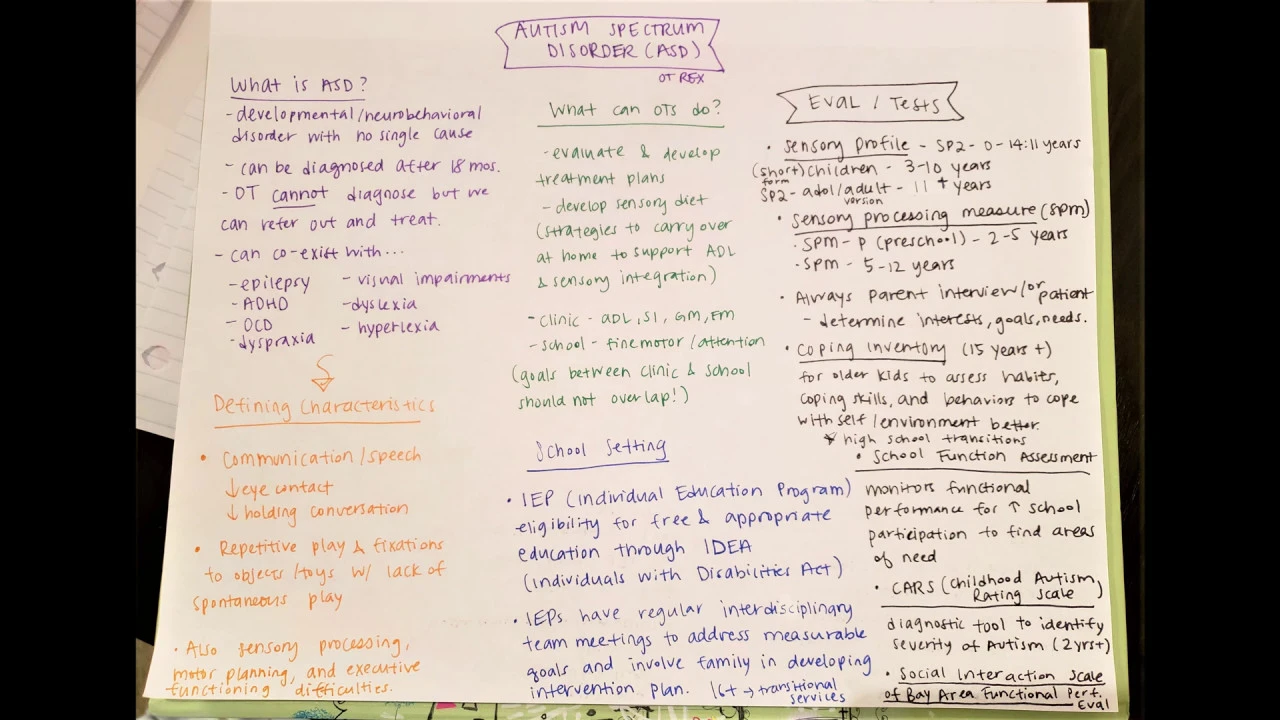 AUTISM SPECTRUM
DISORDER (ASD)
OT REX
What is ASD?
- developmental/neurobehavioral
disorder with no single cause
- can be diagnosed after 18 mos.
- OT cannot diagnose but we
can refer out and treat.
- can co-exist with...
- epilepsy
- ADHD
- OCD
- dyspraxia
- visual impairments
- dyslexia
- hyperlexia
Defining Characteristics
• Communication/speech
↓ eye contact
↓ holding conversation
• Repetitive play & fixations
to objects/toys w/ lack of
spontaneous play
• Also sensory processing,
motor planning, and executive
functioning difficulties.
What can OTs do?
- evaluate & develop
treatment plans
- develop sensory diet
(strategies to carry over
at home to support ADL
& sensory integration)
- Clinic - ADL, SI, GM, FM
- school - fine motor/attention
(goals between clinic & school
should not overlap!)
School Setting
• IEP (Individual Education Program)
eligibility for free & appropriate
education through IDEA
(Individuals with Disabilities Act)
• IEPs have regular interdisciplinary
team meetings to address measurable
goals and involve family in developing
intervention plan. 16+ → transitional
services
EVAL / Tests
• Sensory profile - SP2 - 0 - 14:11 years
(short) children - 3-10 years
form
SP2 - adol/adult - 11+ years
version
• Sensory processing measure (SPM)
• SPM - P (preschool) - 2-5 years
• SPM - 5-12 years
• Always parent interview/or patient
- determine interests, goals, needs.
• Coping Inventory (15 years +)
for older kids to assess habits,
coping skills, and behaviors to cope
with self/environment better.
* high school transitions
• School Function Assessment
monitors functional
performance for ↑ school
participation to find areas
of need
• CARS (Childhood Autism
Rating Scale)
diagnostic tool to identify
severity of Autism (2yrs+)
• Social Interaction Scale
of Bay Area Functional Perf.
Eval